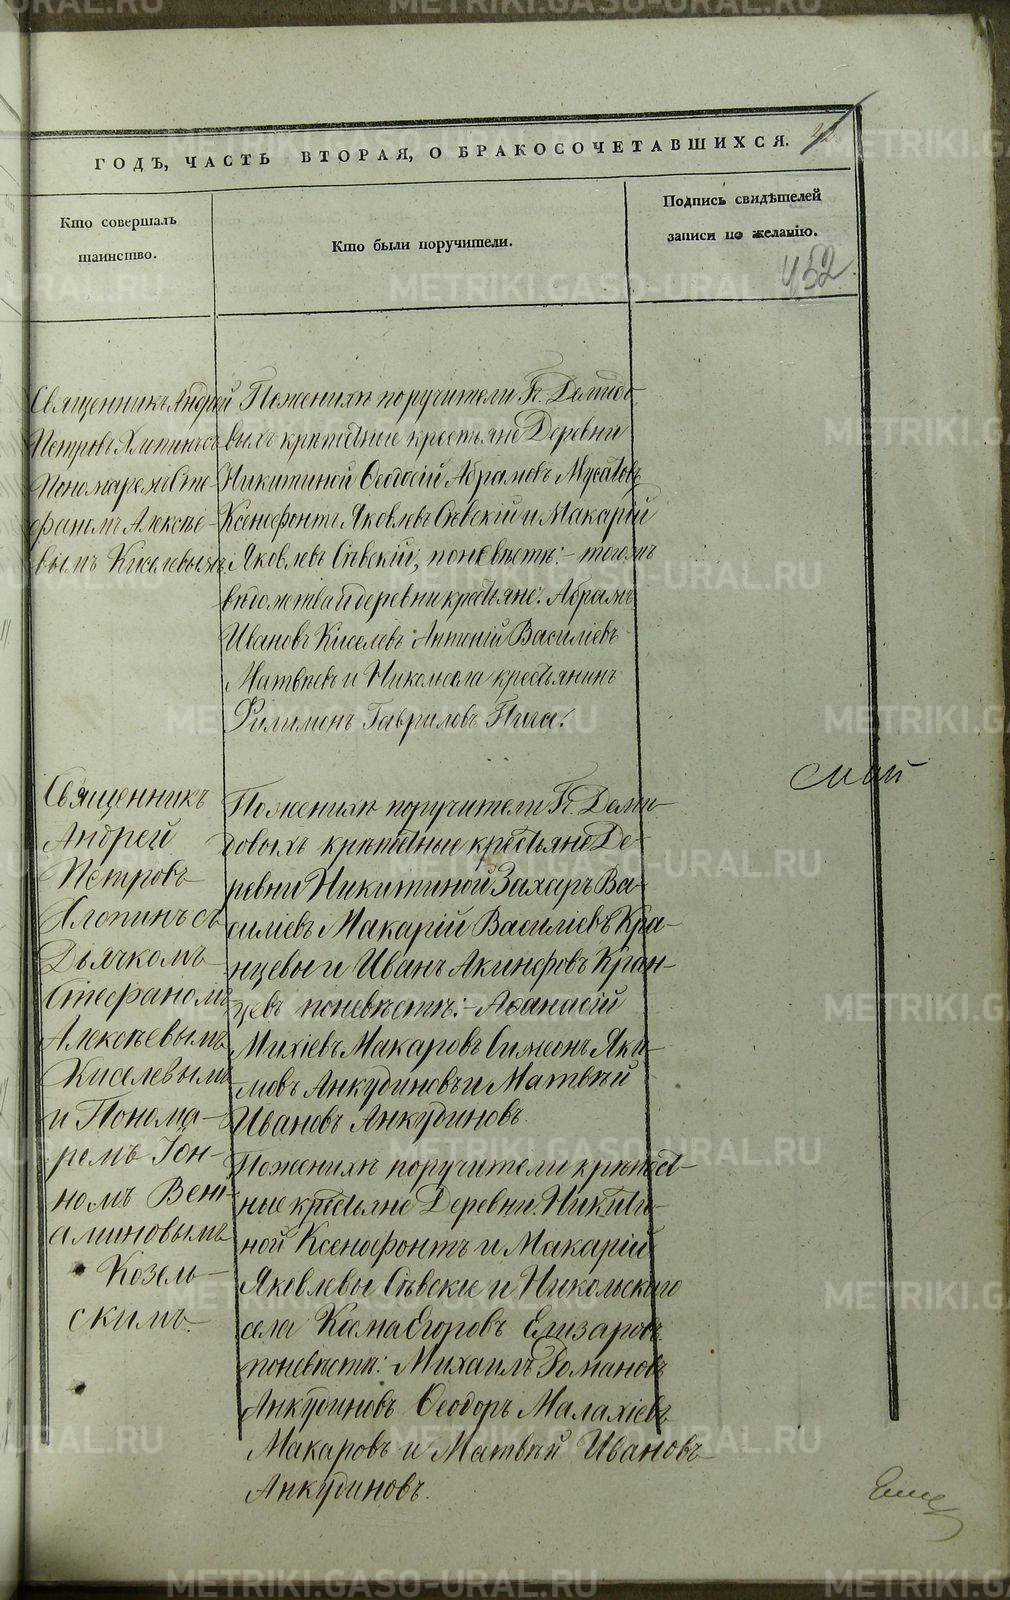 ГОДЪ, ЧАСТЬ ВТОРАЯ, О БРАКОСОЧЕТАВШИХСЯ.
Кто совершалъ
таинство.
Кто были поручители.
Подпись свидѣтелей
записи по желанію.
452
Священникъ Андрей
Петровъ Хлопинъ съ
Пономаремъ Сте-
фаномъ Алексѣе-
вымъ Киселевымъ
По женихѣ поручители Гг. Демидо-
выхъ крѣпостные крестьяне Деревни
Никитиной Ѳеодосій Абрамовъ Мусатовъ
Ксенофонтъ Яковлевъ Сѣвскій и Макарій
Яковлевъ Сѣвскій, по невѣстѣ:- тогожъ
вѣдомства и деревни крестьяне: Абрамъ
Ивановъ Киселевъ Антоній Василіевъ
Матвѣевъ и Никол: села крестьянинъ
Филимонъ Гавриловъ
Священникъ
Андрей
Петровъ
Хлопинъ съ
Дьячкомъ
Стефаномъ
Алексѣевымъ
Киселевымъ
и Понома-
ремъ Іон-
номъ Вені-
аминовымъ
Козель-
скимъ.
По женихѣ поручители Гг. Деми-
довыхъ крѣпостные крестьяне Де-
ревни Никитиной Захаръ Ва-
силіевъ Макарій Василіевъ Кра-
нцевы и Иванъ Акинфовъ Кран-
цевъ по невѣстѣ:- Аѳанасій
Михіевъ Макаровъ Симеонъ Яки-
мовъ Анкудиновъ и Матвѣй
Ивановъ Анкудиновъ.
По женихѣ поручители крѣпост-
ные крестьяне Деревни Никити-
ной Ксенофонтъ и Макарій
Яковлевы Сѣвскіе и Никольскаго
села Косма Егоровъ Елизаровъ.
по невѣстѣ: Михаилъ Романовъ
Анкудиновъ Ѳеодоръ Малахіевъ
Макаровъ и Матвѣй Ивановъ
Анкудиновъ.
METRIKI.GASO-URAL.RU